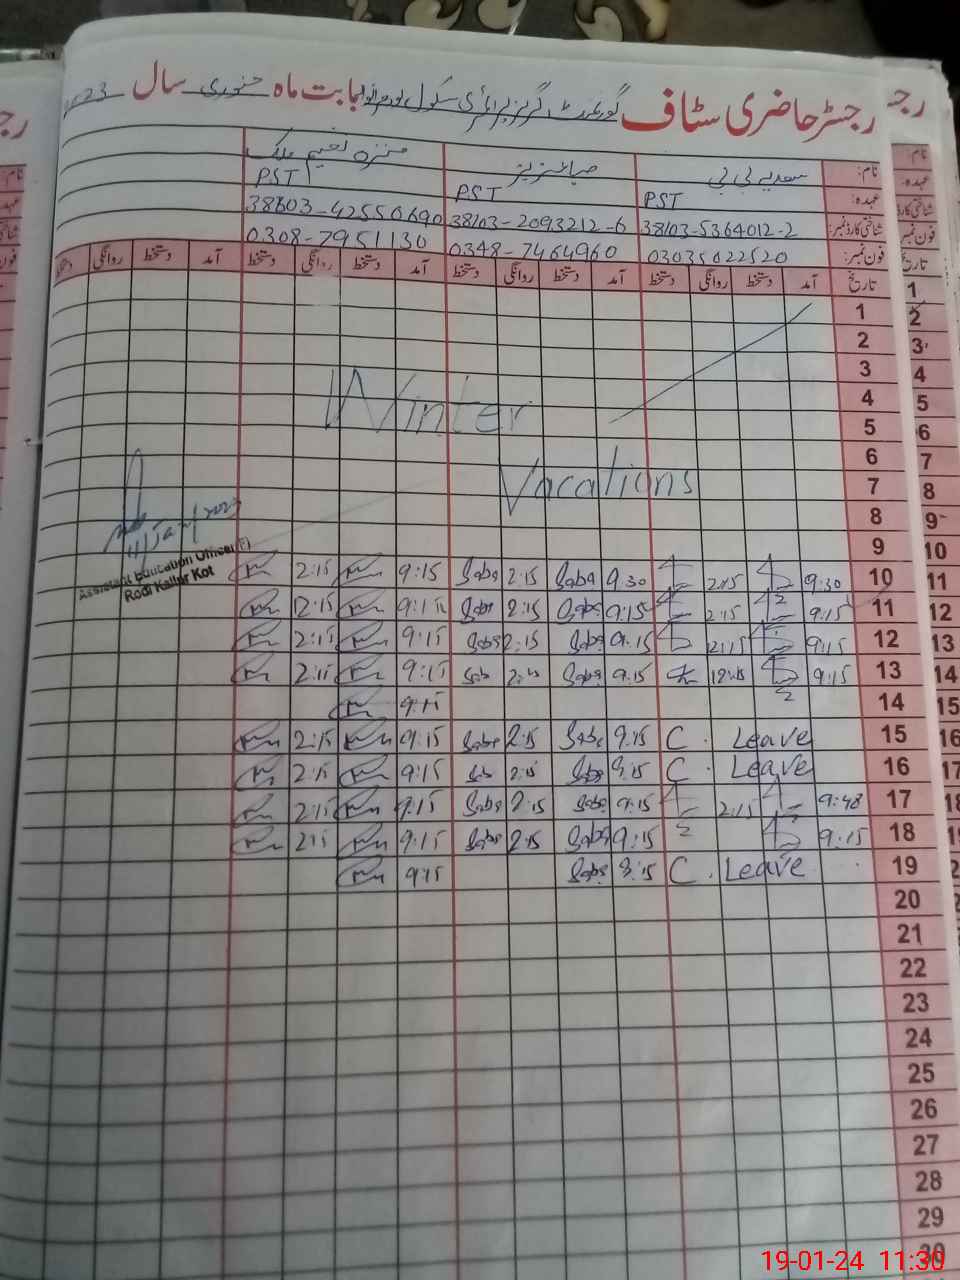 رجسٹر حاضری سٹاف گورنمنٹ گرلز پرائمری سکول بابت ماہ جنوری سال 2023
نام: سعدیہ بی بی صبا عزیز منزہ نعیم ملک
عہدہ: PST PST PST
شناختی کارڈ نمبر: 38103-5364012-2 38103-2093212-6 38603-42550690
فون نمبر: 03035022520 0348-7464960 0308-7951130
تاریخ آمد دستخط روانگی دستخط آمد دستخط روانگی دستخط آمد دستخط روانگی دستخط آمد دستخط روانگی دستخط
1
2
3
4
Winter
5
6
7
Vacations
8
9
11/Jan/2023
Assistant Education Officer (F)
Rodi Kallur Kot
10 9:30 2:15 9:30 Saba 2:15 Saba 9:15 2:15
11 9:15 2:15 9:15 Saba 2:15 Saba 9:15 2:15
12 9:15 2:15 9:15 Saba 2:15 Saba 9:15 2:15
13 9:15 12:15 9:15 Saba Sab 9:15 2:15
14 9:15
15 C. Leave 9:15 Saba 2:15 Saba 9:15 2:15
16 C. Leave 9:15 Saba 2:15 Sab 9:15 2:15
17 9:48 2:15 9:15 Saba 2:15 Saba 9:15 2:15
18 9:15 9:15 Saba 2:15 Saba 9:15 215
19 C. Leave 9:15 Saba 9:15
20
21
22
23
24
25
26
27
28
29
30
19-01-24 11:30